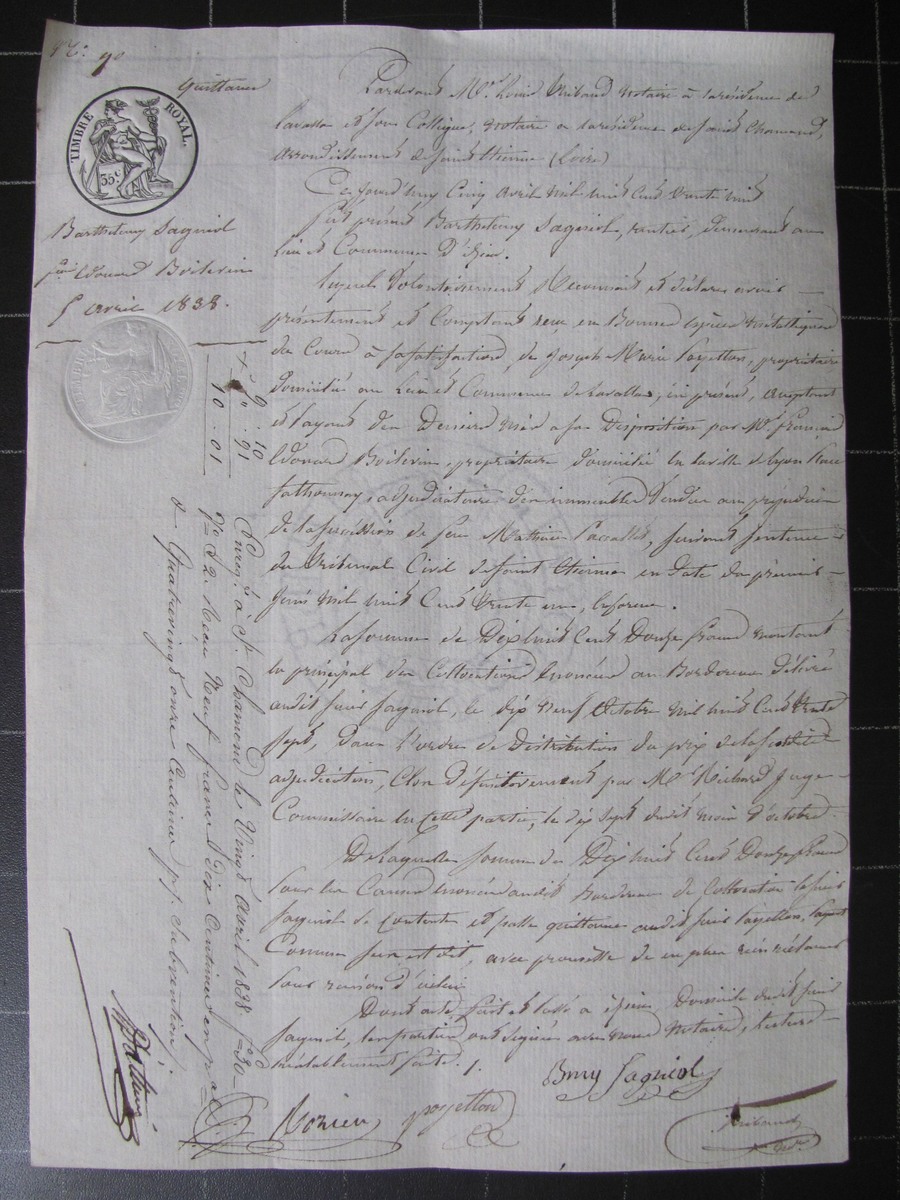 N.° 90
quittance
TIMBRE ROYAL.
35 c.
Barthelemy Sagniol
pour Edouard Boilevin
5 avril 1838.
Pardevant M.e Louis Thibaud Notaire à la résidence de
Lavalla et son Collègue, Notaire à la résidence de Saint Chamond,
arrondissement de Saint Etienne (Loire)
Ce jourd'huy Cinq avril mil huit cent trente huit
fut présent Barthelemy Sagniol, rentier, demeurant au
Lieu et Commune d'Izieu.
Lequel Volontairement Reconnait et déclare avoir
présentement et Comptant reçu en Bonnes Espèces métalliques
du Cours à sa satisfaction, de Joseph Marie Poyetton, propriétaire
domicilié au Lieu et Commune de Lavalla, ici présent, acceptant
et payant des Deniers mis à sa Disposition par M.r François
Edouard Boilevin, propriétaire domicilié en la ville de Lyon place
, adjudicataire des immeubles Vendus au préjudice
de la succession de feu Mathieu, suivant sentence
du Tribunal Civil de Saint Etienne en date du premier
juin mil huit cent trente un, en forme.
La somme de Dix huit Cent Douze francs montant
en principal des Collocations énoncées au Bordereau délivré
audit sieur Sagniol, le dix neuf Octobre mil huit Cent trente
sept, dans l'ordre de Distribution du prix de la susdite
adjudication, Clos définitivement par M.r Richard Juge
Commissaire en cette partie, le dix sept dudit mois d'octobre.
De laquelle somme de Dix huit Cent Douze francs
pour les Causes énoncées audit Bordereau de Collocation le sieur
Sagniol se contente et passe quittance audit sieur Poyetton, payant
Comme sus est dit, avec promesse de ne plus rien réclamer
pour raison d'icelui.
Dont acte fait et passé à Izieu Domicile dudit sieur
Sagniol, les parties ont signées avec nous Notaires, lecture
préalablement faite. /.
Bmy Sagniol
poyetton
Thibaud
Not.re
9 . 10
" . 91
10 . 01
Enreg.é à S.t Chamond le Vingt avril 1838 f.o 30
c.e 2. Reçu Neuf francs Dix Centimes en p.al
& Quatrevingt onze Centimes p.r subvention.